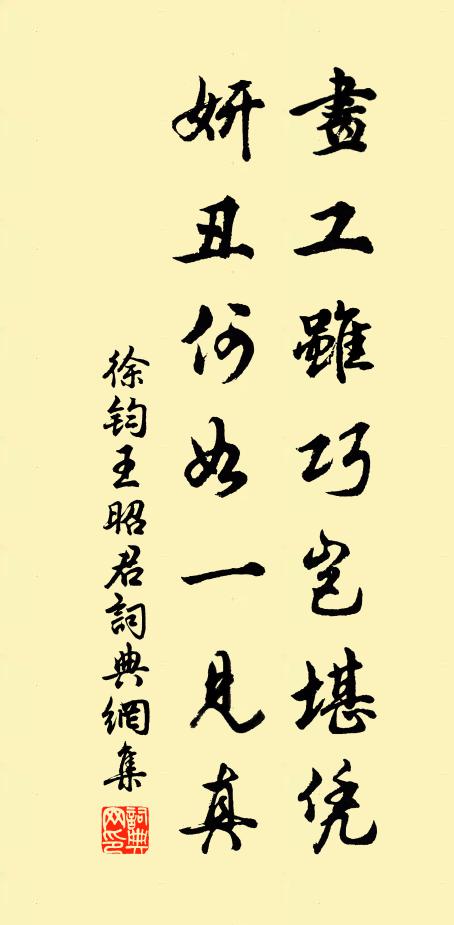 畫工雖巧豈堪凭
妍丑何如一見真
徐鈞王昭君詞典網集
詞典網印